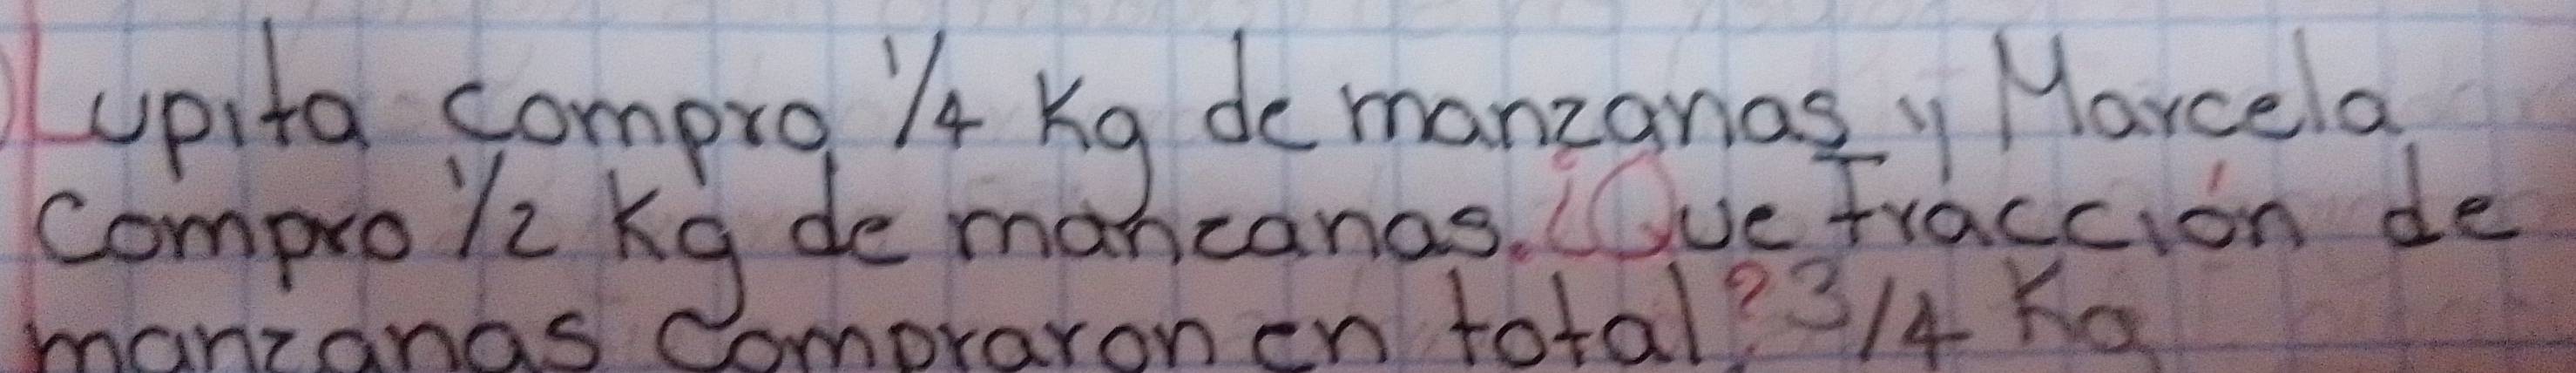 Lupita compro 1/4 Kg de manzanas y Marcela
Compro 1/2 Kg de manzanas. ¿Que fracción de
manzanas Compraron en total? 3/4 Kg